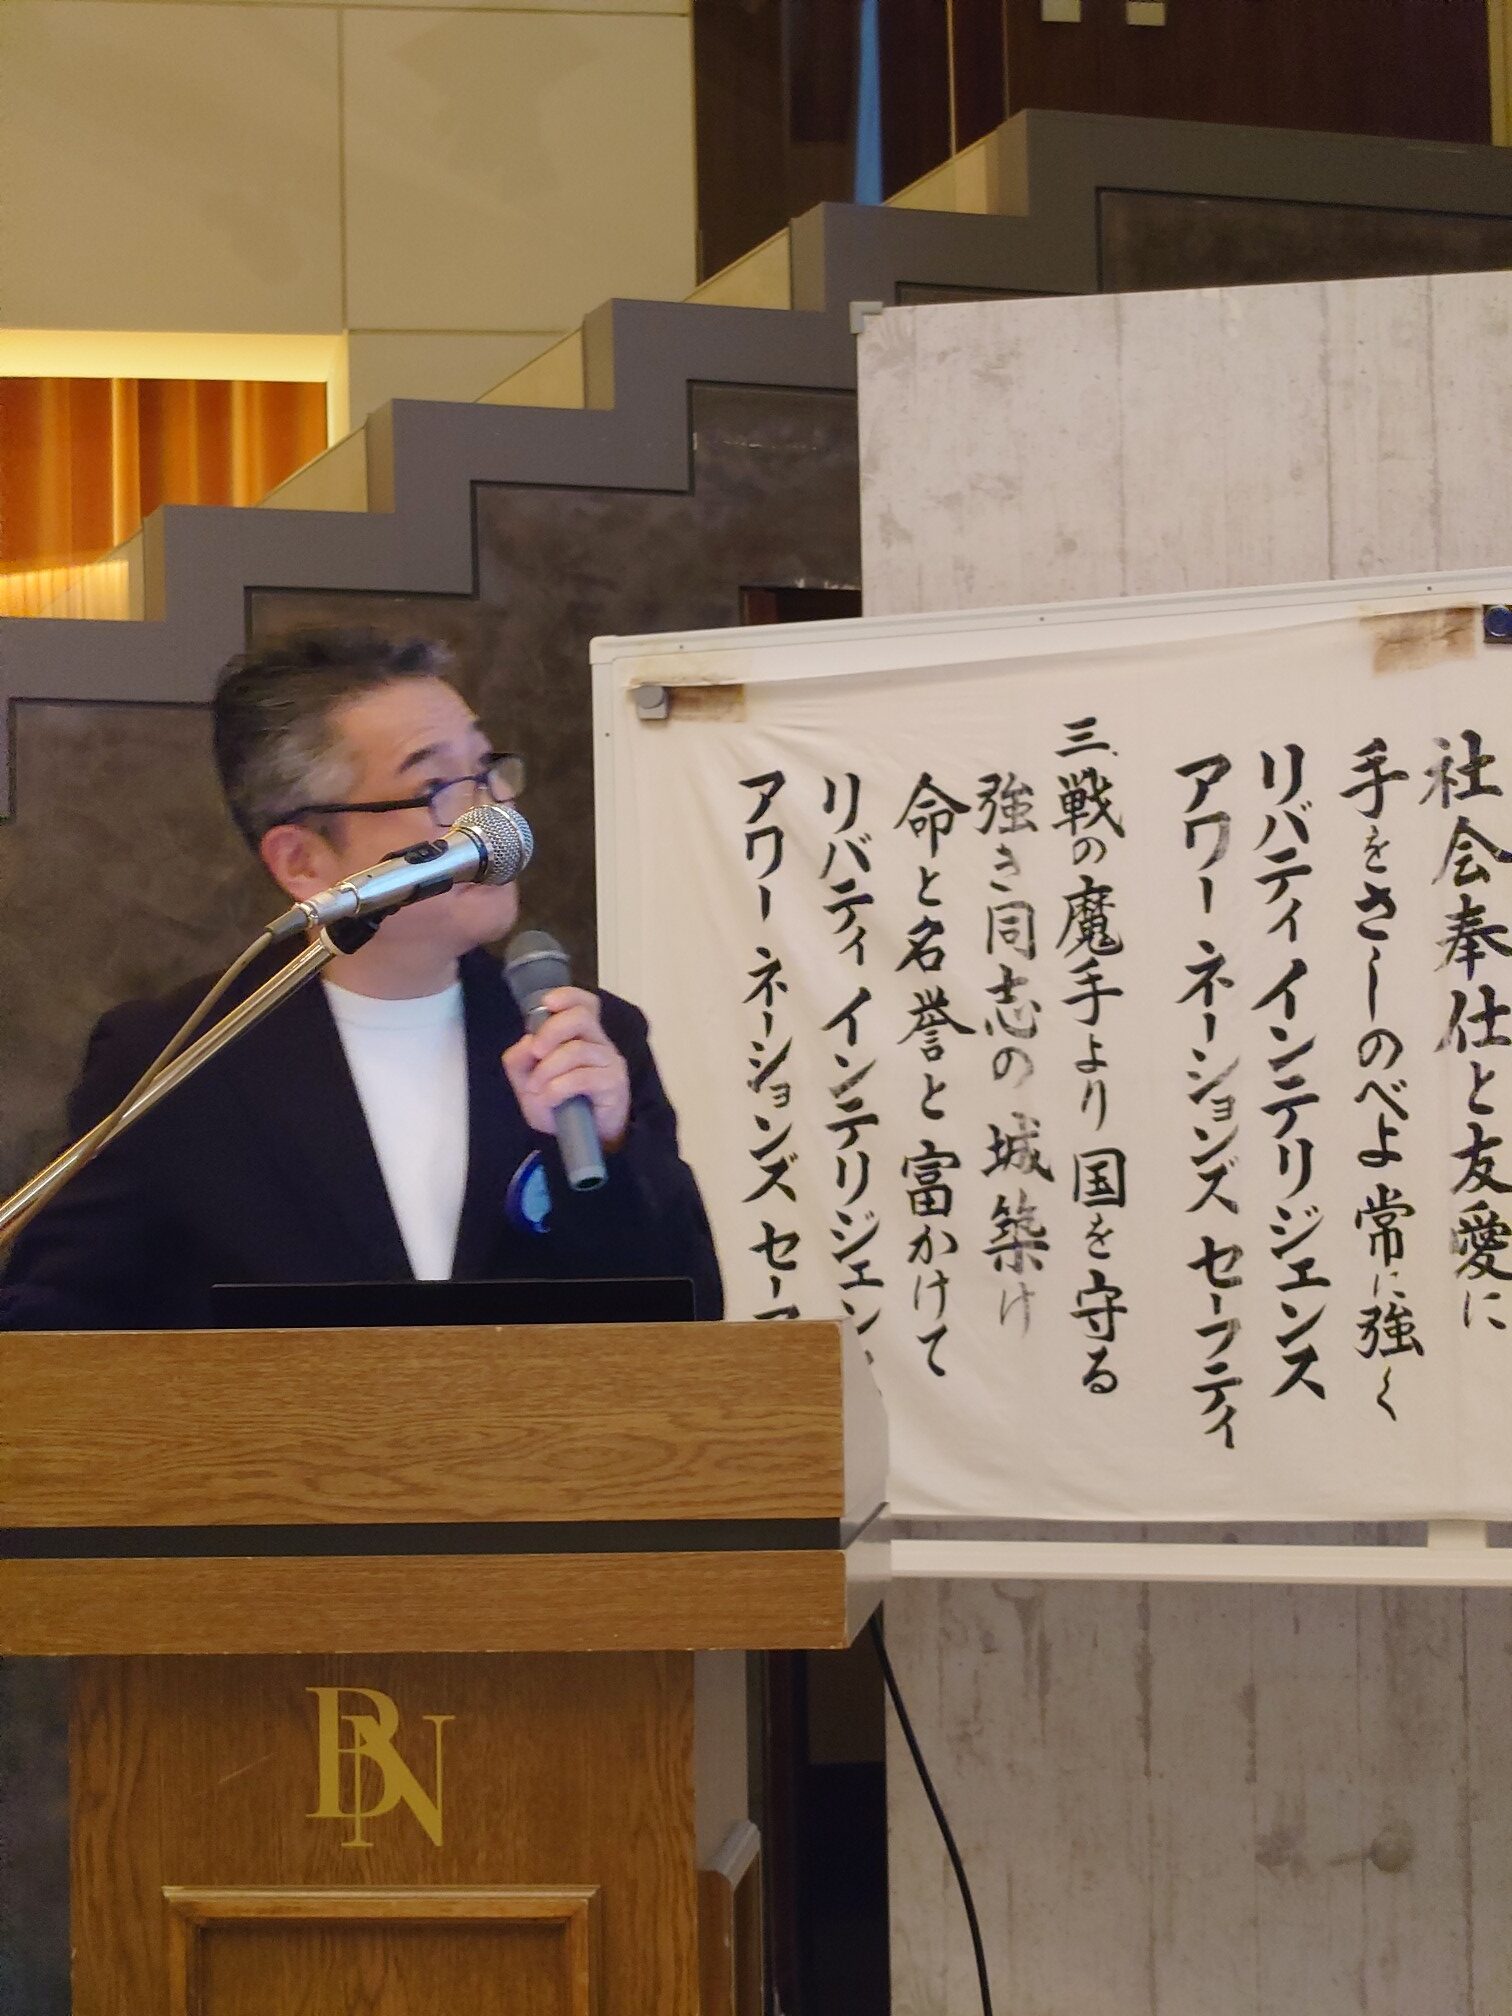 社会奉仕と友愛に
手をさしのべよ常に強く
リバティ インテリジェンス
アワー ネーションズ セーフティ
三、戦の魔手より国を守る
強き同志の城築け
命と名誉と富かけて
リバティ インテリジェン
アワー ネーションズ セー
BN